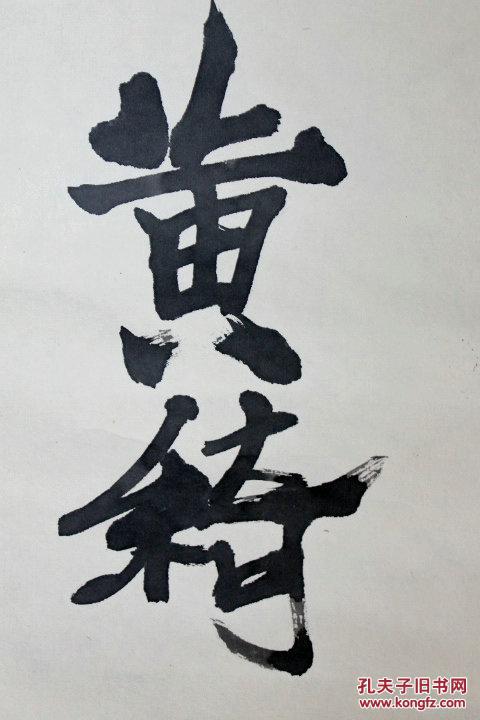 黄
绮
孔夫子旧书网
www.kongfz.com